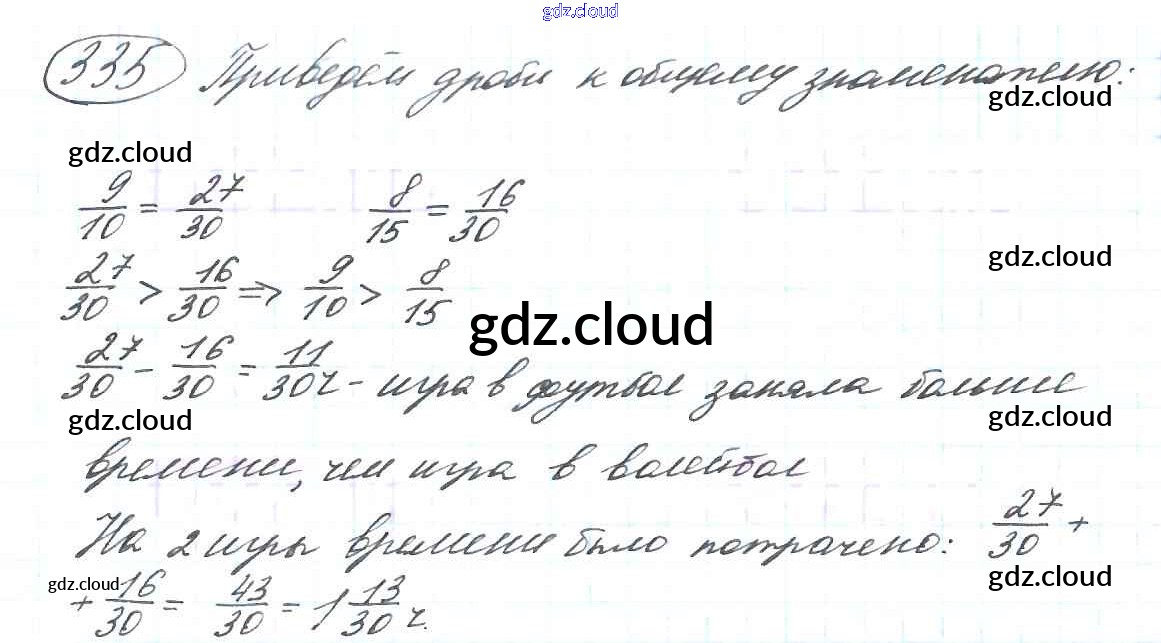 gdz.cloud
335 Приведём дроби к общему знаменателю:
gdz.cloud
gdz.cloud
9/10 = 27/30 8/15 = 16/30
gdz.cloud
27/30 > 16/30 => 9/10 > 8/15
gdz.cloud
27/30 - 16/30 = 11/30 ч - игра в футбол заняла больше
gdz.cloud
gdz.cloud
времени, чем игра в волейбол
На 2 игры времени было потрачено: 27/30 +
gdz.cloud
gdz.cloud
+ 16/30 = 43/30 = 1 13/30 ч.